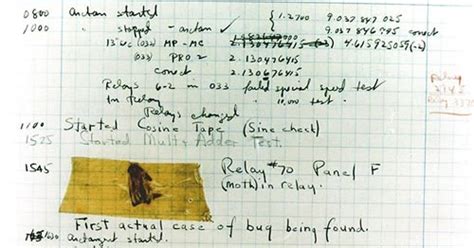 0800 Antan started { 1.2700 9.037 847 025
1000 " stopped - antan ✓ 9.037 846 995 correct
13" (032) MP - MC 2.130476415 4.615925059(-2)
(033) PRO 2 2.130476415
correct 2.130676415
Relays 6-2 in 033 failed special speed test
In Relay " 10,000 test .
Relay
Relays changed
1100 Started Cosine Tape (Sine check)
1525 Started Mult+Adder Test.
1545 Relay #70 Panel F
(moth) in relay.
First actual case of bug being found.
antangent started.